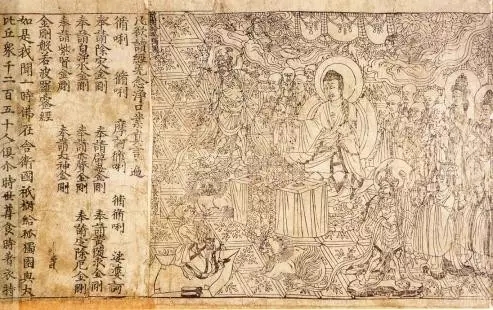 凡欲讀經先念淨口業真言一遍
脩唎 脩唎 摩訶脩唎 脩脩唎 娑婆訶
奉請除灾金剛 奉請辟毒金剛 奉請黃隨求金剛
奉請白淨水金剛 奉請赤聲金剛 奉請定除厄金剛
奉請紫賢金剛 奉請大神金剛
金剛般若波羅蜜經
如是我聞一時佛在舍衛國祇樹給孤獨園與大
比丘眾千二百五十人俱尒時世尊食時著衣持